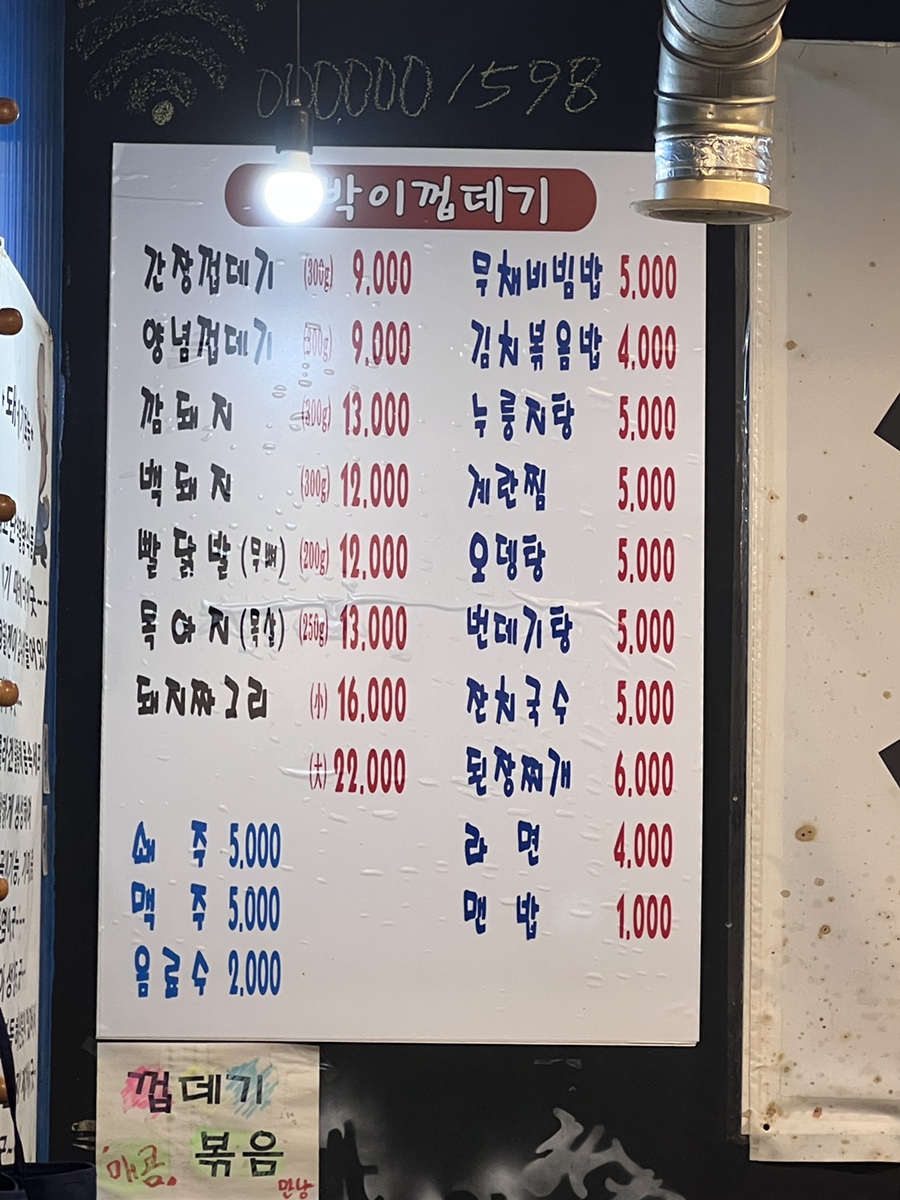 0000001598
박이껍데기
간장껍데기 (300g) 9,000
양념껍데기 (300g) 9,000
깜돼지 (300g) 13,000
백돼지 (300g) 12,000
빨닭발(무뼈) (200g) 12,000
목야지(목살) (250g) 13,000
돼지짜그리 (小) 16,000
(大) 22,000
쐬 주 5,000
맥 주 5,000
음료수 2,000
무채비빔밥 5,000
김치볶음밥 4,000
누룽지탕 5,000
계란찜 5,000
오뎅탕 5,000
번데기탕 5,000
잔치국수 5,000
된장찌개 6,000
라 면 4,000
맨 밥 1,000
껍데기
매콤 볶음
만낭